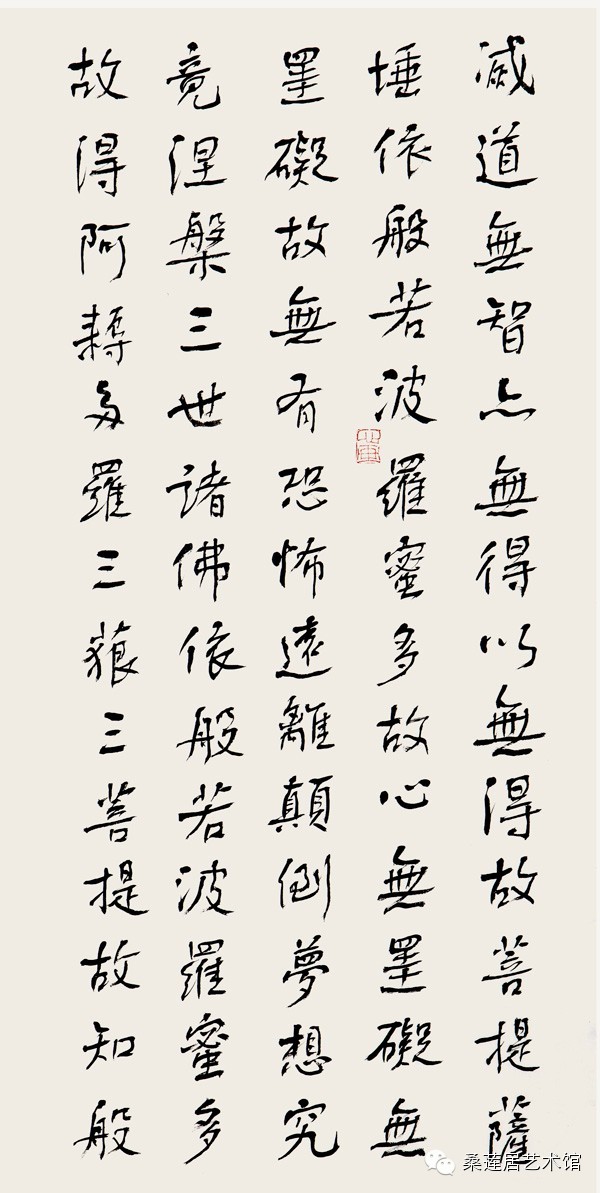 滅道無智亦無得以無得故菩提薩
埵依般若波羅蜜多故心無罣礙無
罣礙故無有恐怖遠離顛倒夢想究
竟涅槃三世諸佛依般若波羅蜜多
故得阿耨多羅三藐三菩提故知般
桑莲居艺术馆